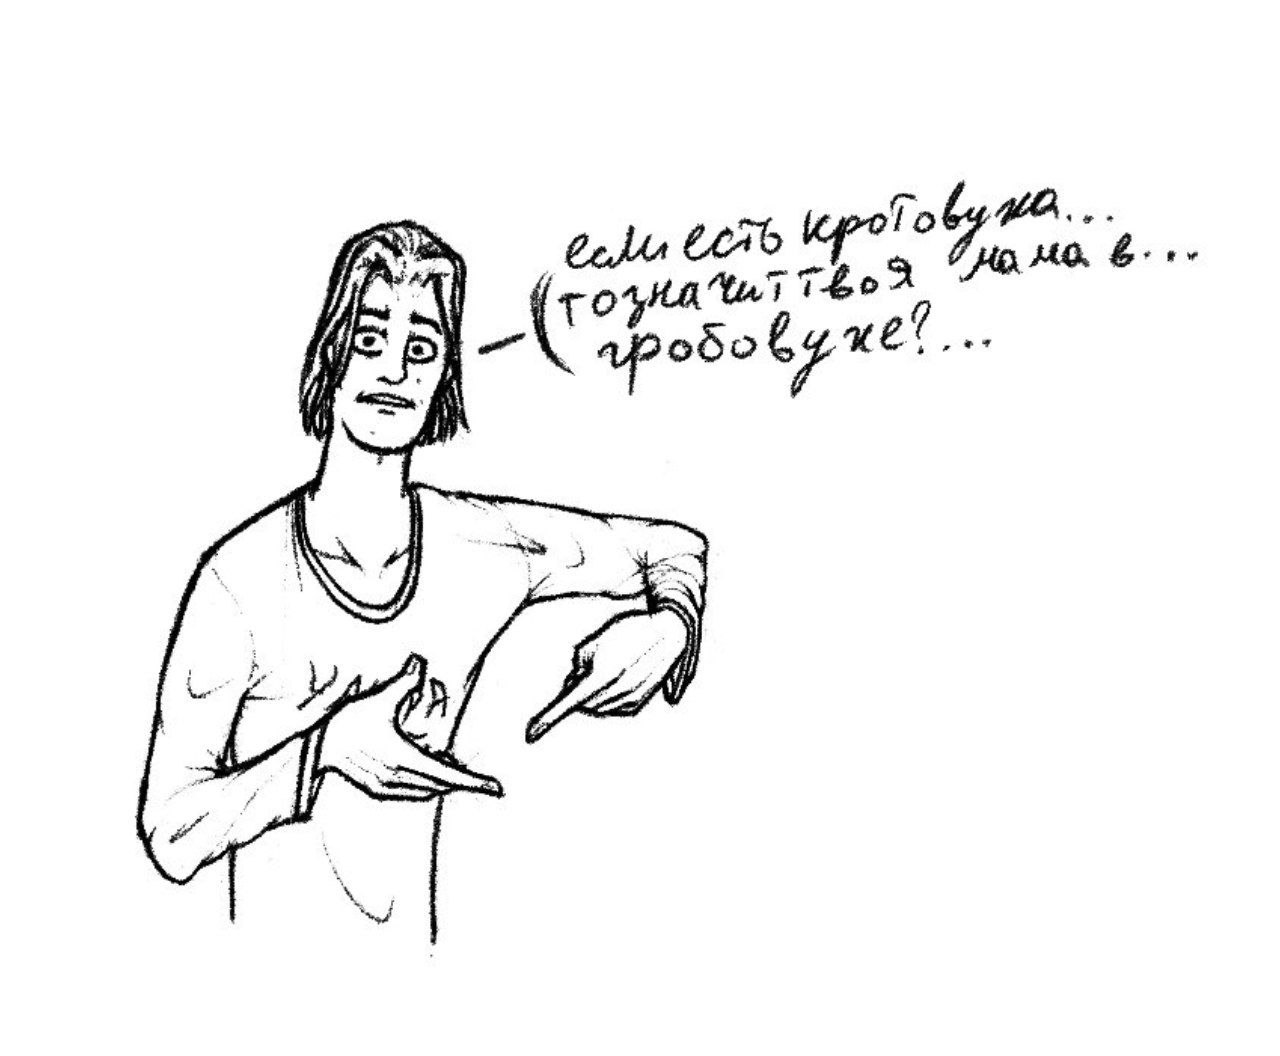 если есть кротовуха...
то значит твоя мама в...
гробовухе?...